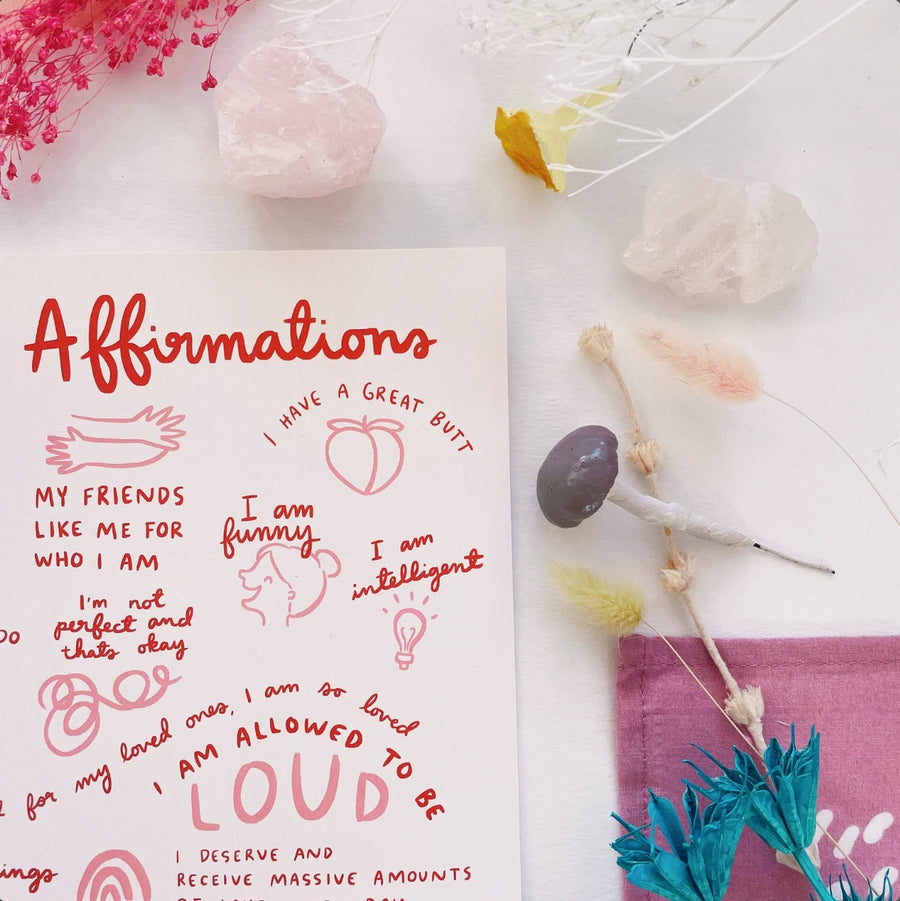 Affirmations
I HAVE A GREAT BUTT
MY FRIENDS
LIKE ME FOR
WHO I AM
I am
funny
I am
intelligent
I'm not
perfect and
thats okay
DO
for my loved ones, I am so loved
I AM ALLOWED TO BE
LOUD
ings
I DESERVE AND
RECEIVE MASSIVE AMOUNTS